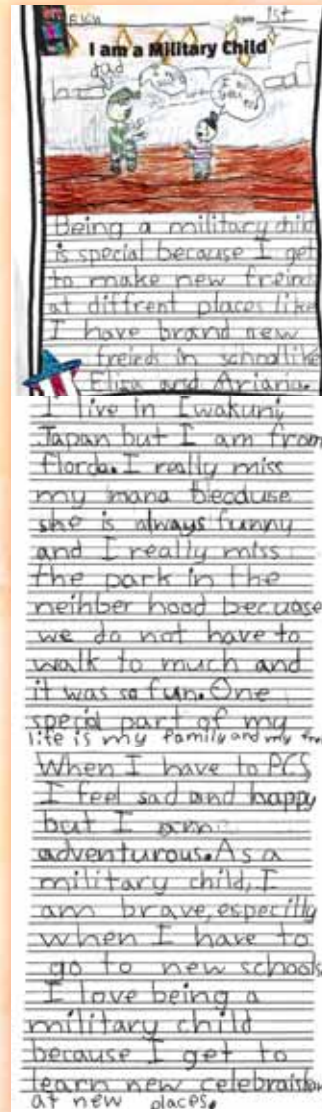 1st
I am a Military Child
dad
Being a military child
is special because I get
to make new freinds
at diffrent places like
I have brand new
freinds in school like
Elisa and Ariana.
I live in Iwakuni,
Japan but I am from
florda. I really miss
my mana because
she is always funny
and I really miss
the park in the
neihber hood becuase
we do not have to
walk to much and
it was so fun. One
special part of my
life is my family and my
When I have to PCS
I feel sad and happy
but I am
adventurous. As a
military child, I
am brave, especilly
when I have to
go to new schools
I love being a
military child
because I get to
learn new
at new places.